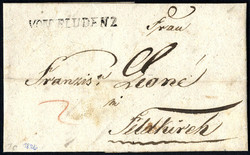 VON BLUDENZ
Frau
Franzis: Leone
in
Feldkirch